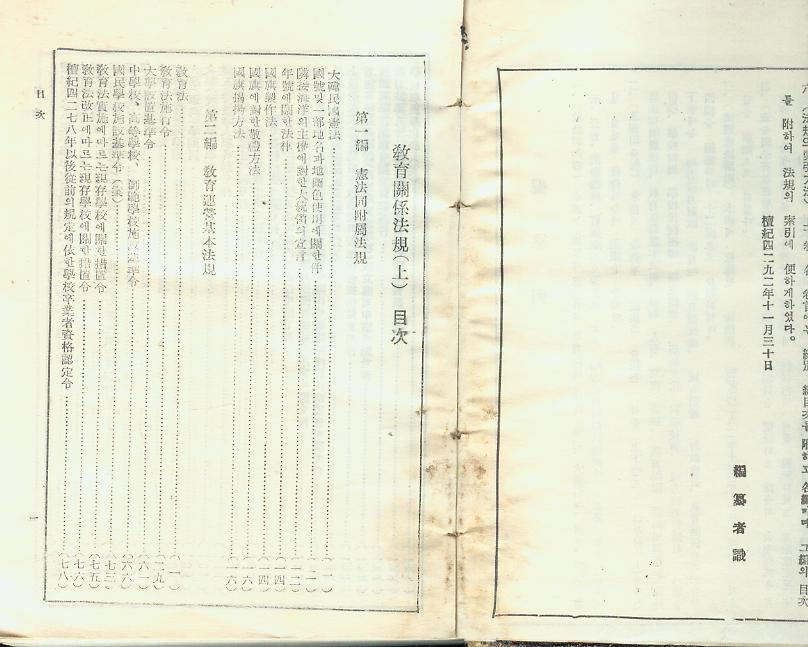 를 附하여 法規의 索引에 便하게하였다。
檀紀四二九二年十一月三十日
編纂者識
敎育關係法規(上) 目次
第一編 憲法同附屬法規
大韓民國憲法 (一)
國號및一部地名과地圖色使用에關한件
隣接海洋의主權에對한大統領의宣言 (一二)
年號에關한法律 (一四)
國旗製作法 (一四)
國旗에對한敬禮方法 (一六)
國旗揭揚方法 (一六)
第二編 敎育運營基本法規
敎育法 (一)
敎育法施行令 (二九)
大學設置基準令 (六一)
中學校、高等學校、師範學校施設基準令 (六六)
國民學校施設基準令(案) (七三)
敎育法實施에따르는現存學校에關한措置令 (七五)
敎育法改正에따르는現存學校에關한措置令 (七六)
檀紀四二七八年以後從前의規定에依한學校卒業者資格認定令 (七八)
目次
一